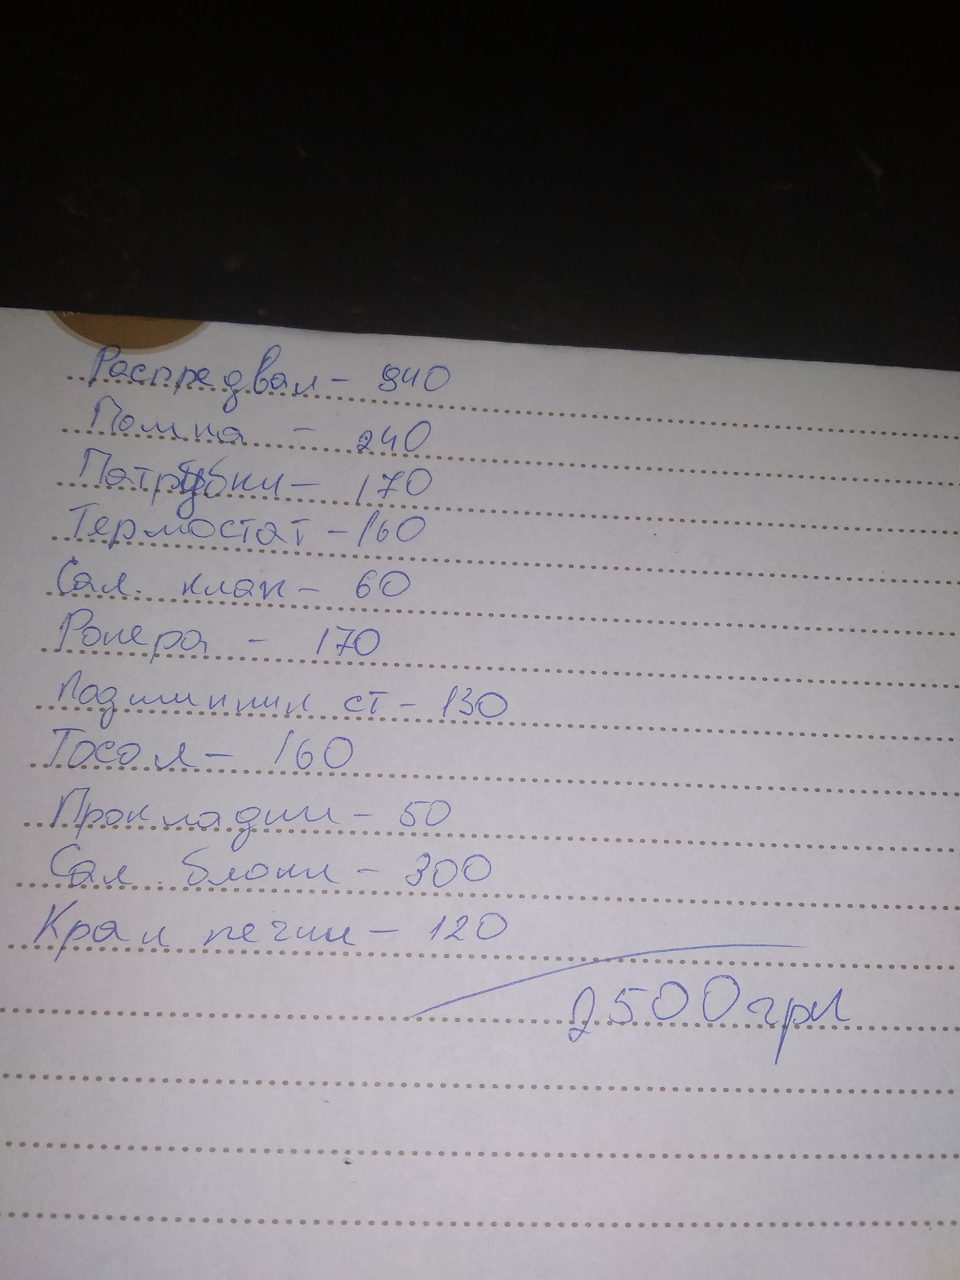 Распредвал - 940
Помпа - 240
Патрубки - 170
Термостат - 160
Сал. клап - 60
Ролера - 170
Падшипник ст - 130
Тосол - 160
Прокладки - 50
Сал. блоки - 300
Кран печки - 120
2500 грн